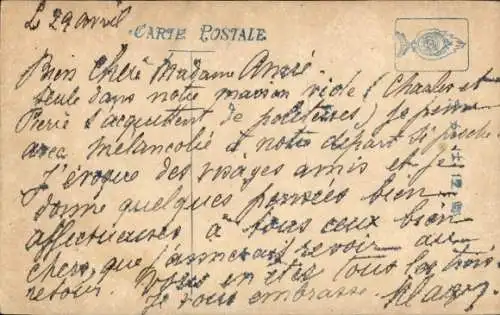 Le 29 avril
CARTE POSTALE
Bien chère Madame André
Seule dans notre maison vide (Charles et
Pierre s'acquittent de politesses) je pense
avec mélancolie à notre départ si proche
J'évoque des visages amis et je
donne quelques pensées bien
affectueuses à tous ceux bien
chers, que j'aimerais revoir au
retour. Vous en êtes tous les trois
Je vous embrasse.